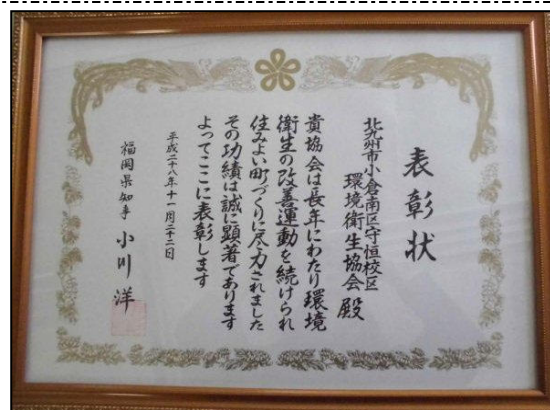 表彰状
北九州市小倉南区守恒校区
環境衛生協会 殿
貴協会は長年にわたり環境
衛生の改善運動を続けられ
住みよい町づくりに尽力されました
その功績は誠に顕著であります
よってここに表彰します
平成二十八年十一月二十二日
福岡県知事 小川 洋